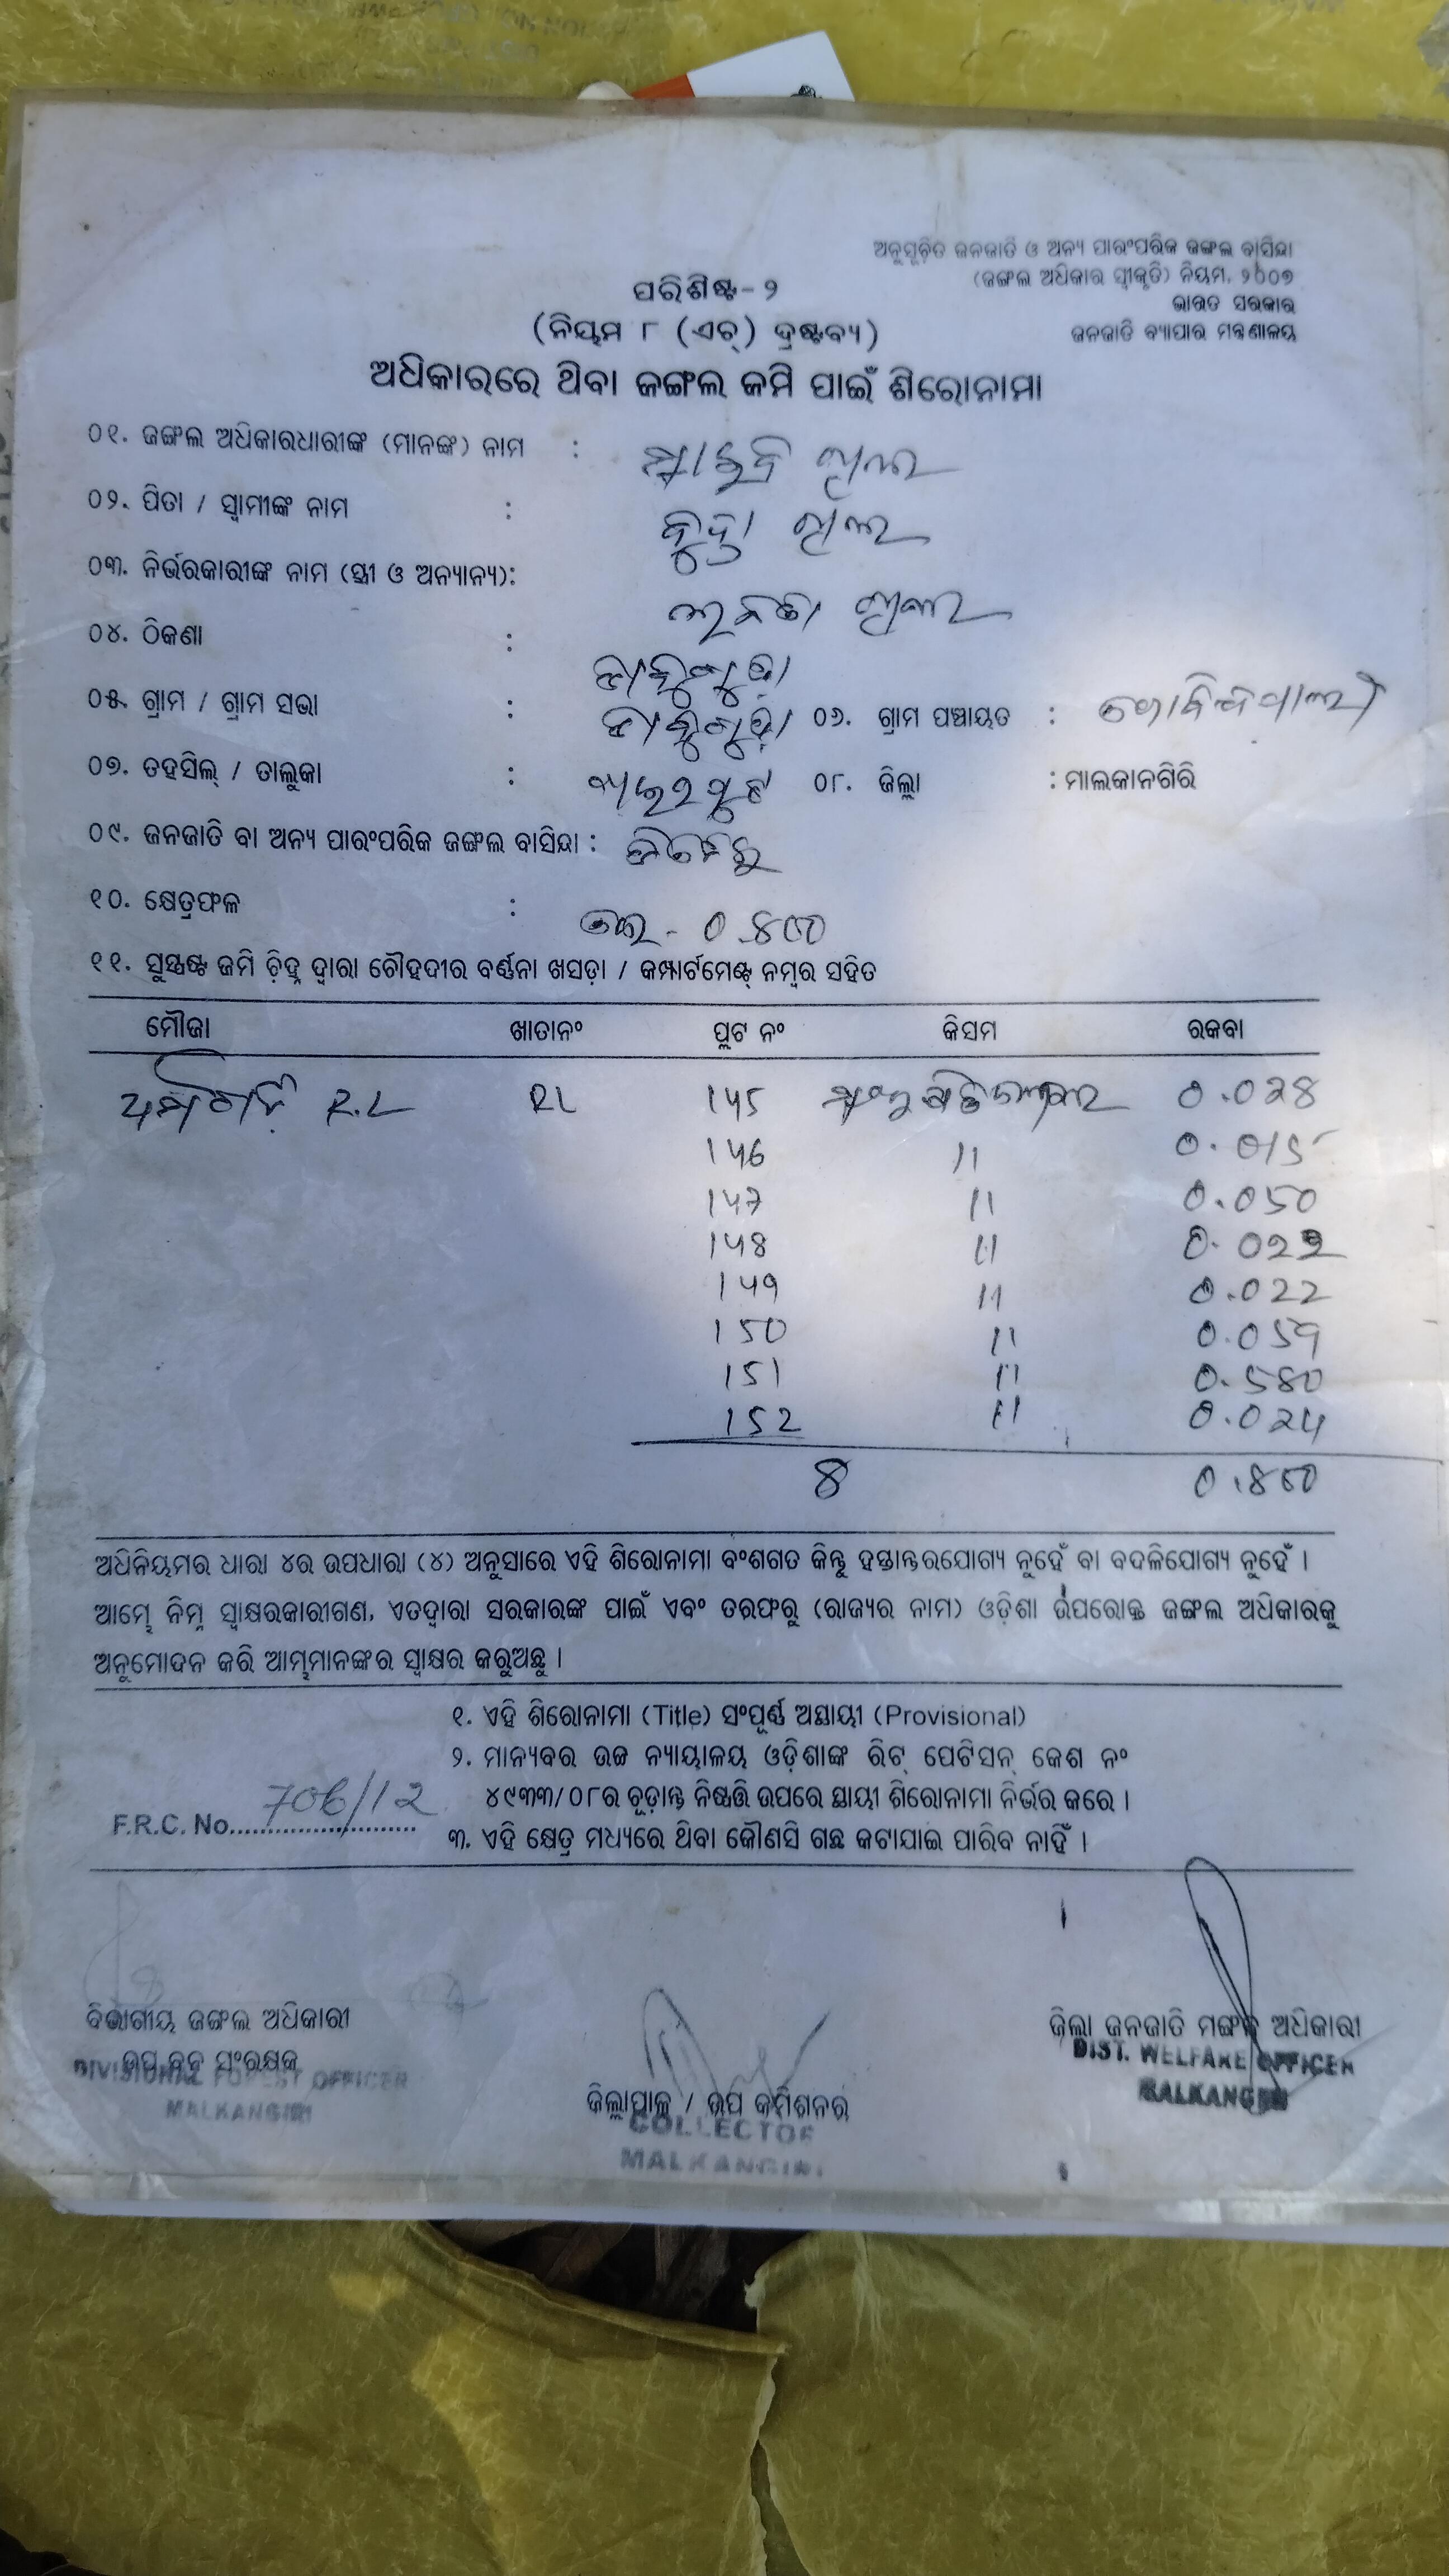 ଅନୁସୂଚିତ ଜନଜାତି ଓ ଅନ୍ୟ ପାରଂପରିକ ଜଙ୍ଗଲ ବାସିନ୍ଦା
(ଜଙ୍ଗଲ ଅଧିକାର ସ୍ୱୀକୃତି) ନିୟମ, ୨୦୦୭
ଭାରତ ସରକାର
ଜନଜାତି ବ୍ୟାପାର ମନ୍ତ୍ରଣାଳୟ
ପରିଶିଷ୍ଟ - ୨
(ନିୟମ ୮ (ଏଚ୍) ଦ୍ରଷ୍ଟବ୍ୟ)
ଅଧିକାରରେ ଥିବା ଜଙ୍ଗଲ ଜମି ପାଇଁ ଶିରୋନାମା
୦୧. ଜଙ୍ଗଲ ଅଧିକାରଧାରୀଙ୍କ (ମାନଙ୍କ) ନାମ :
୦୨. ପିତା / ସ୍ୱାମୀଙ୍କ ନାମ :
୦୩. ନିର୍ଭରକାରୀଙ୍କ ନାମ (ସ୍ତ୍ରୀ ଓ ଅନ୍ୟାନ୍ୟ):
୦୪. ଠିକଣା :
୦୫. ଗ୍ରାମ / ଗ୍ରାମ ସଭା : ୦୬. ଗ୍ରାମ ପଞ୍ଚାୟତ : ଗୋବିନ୍ଦପାଲୀ
୦୭. ତହସିଲ୍ / ତାଲୁକା : ୦୮. ଜିଲ୍ଲା : ମାଲକାନଗିରି
୦୯. ଜନଜାତି ବା ଅନ୍ୟ ପାରଂପରିକ ଜଙ୍ଗଲ ବାସିନ୍ଦା :
୧୦. କ୍ଷେତ୍ରଫଳ :
୧୧. ସୁସ୍ପଷ୍ଟ ଜମି ଚିହ୍ନ ଦ୍ୱାରା ଚୌହଦୀର ବର୍ଣ୍ଣନା ଖସଡ଼ା / କମ୍ପାର୍ଟମେଣ୍ଟ୍ ନମ୍ବର ସହିତ
ମୌଜା ଖାତାନଂ ପ୍ଲଟ ନଂ କିସମ ରକବା
R.L RL 145 0.028
146 11 0.015
147 11 0.050
148 11 0.022
149 11 0.022
150 11 0.059
151 11 0.580
152 11 0.024
8 0.800
ଅଧିନିୟମର ଧାରା ୪ର ଉପଧାରା (୪) ଅନୁସାରେ ଏହି ଶିରୋନାମା ବଂଶଗତ କିନ୍ତୁ ହସ୍ତାନ୍ତରଯୋଗ୍ୟ ନୁହେଁ ବା ବଦଳିଯୋଗ୍ୟ ନୁହେଁ ।
ଆମ୍ଭେ ନିମ୍ନ ସ୍ୱାକ୍ଷରକାରୀଗଣ, ଏତଦ୍ୱାରା ସରକାରଙ୍କ ପାଇଁ ଏବଂ ତରଫରୁ (ରାଜ୍ୟର ନାମ) ଓଡ଼ିଶା ଉପରୋକ୍ତ ଜଙ୍ଗଲ ଅଧିକାରକୁ
ଅନୁମୋଦନ କରି ଆମ୍ଭମାନଙ୍କର ସ୍ୱାକ୍ଷର କରୁଅଛୁ ।
୧. ଏହି ଶିରୋନାମା (Title) ସଂପୂର୍ଣ୍ଣ ଅସ୍ଥାୟୀ (Provisional)
୨. ମାନ୍ୟବର ଉଚ୍ଚ ନ୍ୟାୟାଳୟ ଓଡ଼ିଶାଙ୍କ ରିଟ୍ ପେଟିସନ୍ କେଶ ନଂ
୪୯୩୩/୦୮ର ଚୂଡ଼ାନ୍ତ ନିଷ୍ପତ୍ତି ଉପରେ ସ୍ଥାୟୀ ଶିରୋନାମା ନିର୍ଭର କରେ ।
F.R.C. No. 706/12
୩. ଏହି କ୍ଷେତ୍ର ମଧ୍ୟରେ ଥିବା କୌଣସି ଗଛ କଟାଯାଇ ପାରିବ ନାହିଁ ।
ବିଭାଗୀୟ ଜଙ୍ଗଲ ଅଧିକାରୀ
ଉପ ବନ ସଂରକ୍ଷକ
DIVISIONAL FOREST OFFICER
MALKANGIRI
ଜିଲ୍ଲାପାଳ / ଉପ କମିଶନର
COLLECTOR
MALKANGIRI
ଜିଲ୍ଲା ଜନଜାତି ମଙ୍ଗଳ ଅଧିକାରୀ
DIST. WELFARE OFFICER
MALKANGIRI